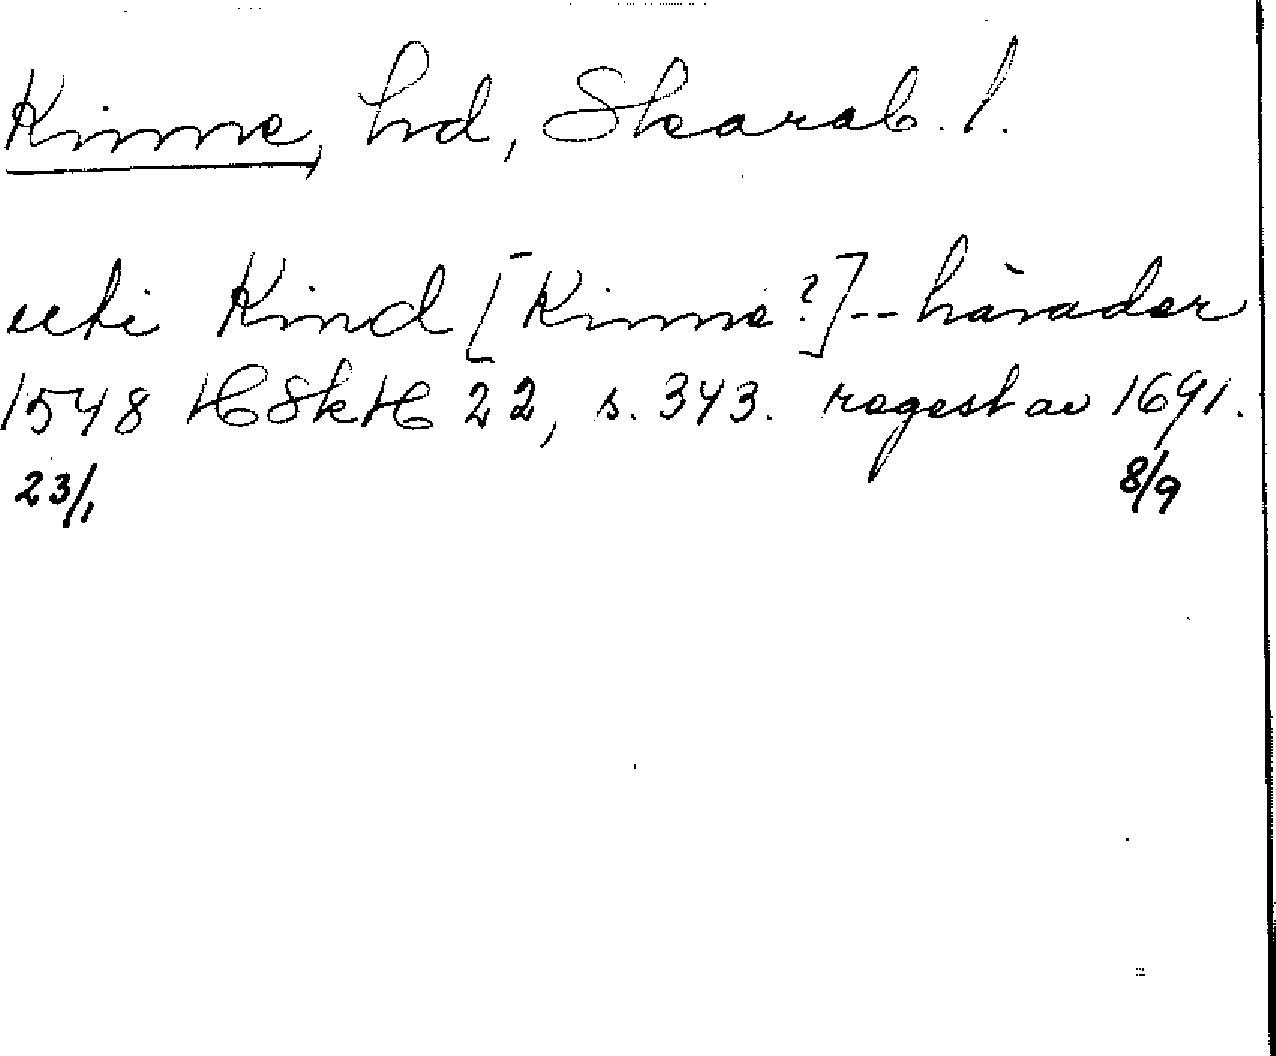 Kinne, hd, Skarab. l.
uti Kind [Kinne?] -- härader
1548 HSkH 22, s. 343. regest av 1691.
23/1 8/9